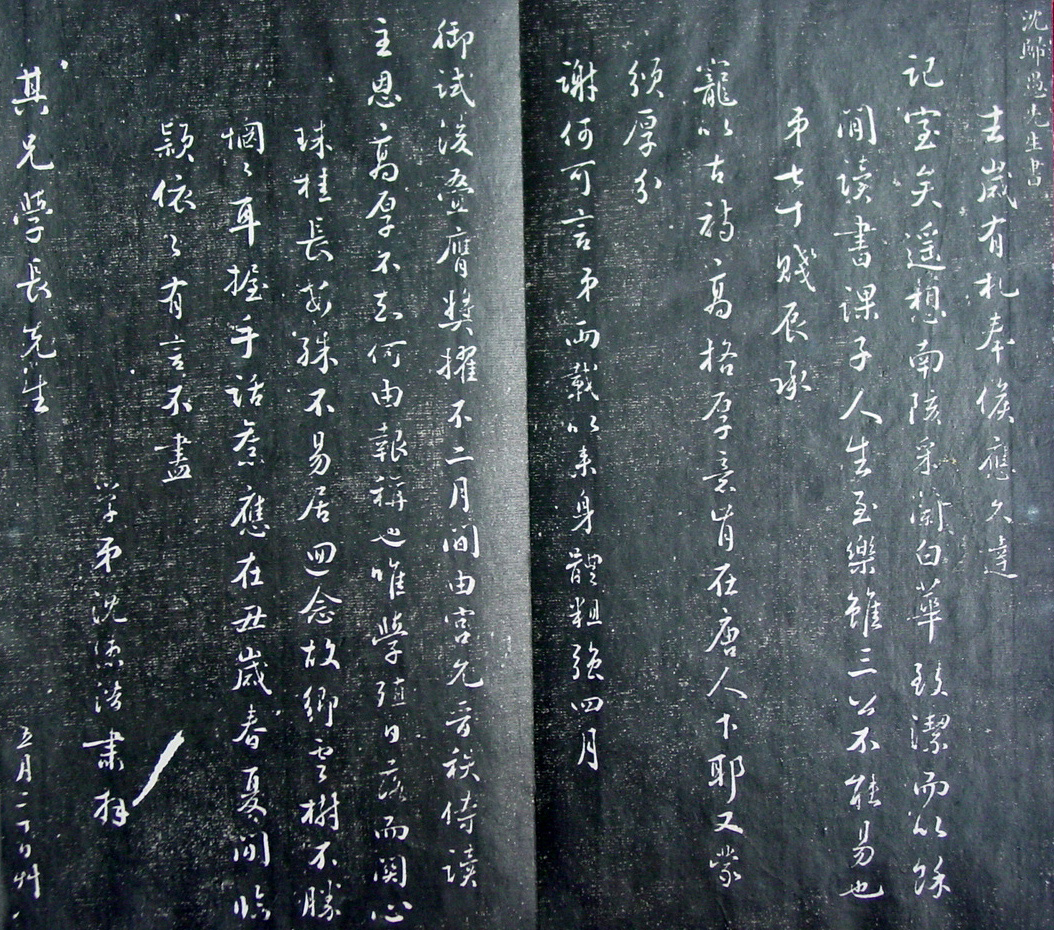 沈歸愚先生書
去歲有札奉候應久達
記室矣遥想南陔采蘭白華 潔而以餘
閒讀書課子人生至樂雖三公不難易也
弟七十賤辰承
寵以古詩高格厚意肯在唐人下耶又蒙
頒厚分
謝何可言弟兩載以來身體粗強四月
御試後叠膺獎擢不二月間由宮允晉秩侍讀
主恩高厚不知何由報稱也唯學殖日落而關心
珠桂長安殊不易居迴念故鄉雲樹不勝
惘〻耳握手話舊應在丑歲春夏間臨
穎依〻有言不盡
學弟沈德潛肅拜
其兄學長先生
五月二十日艸